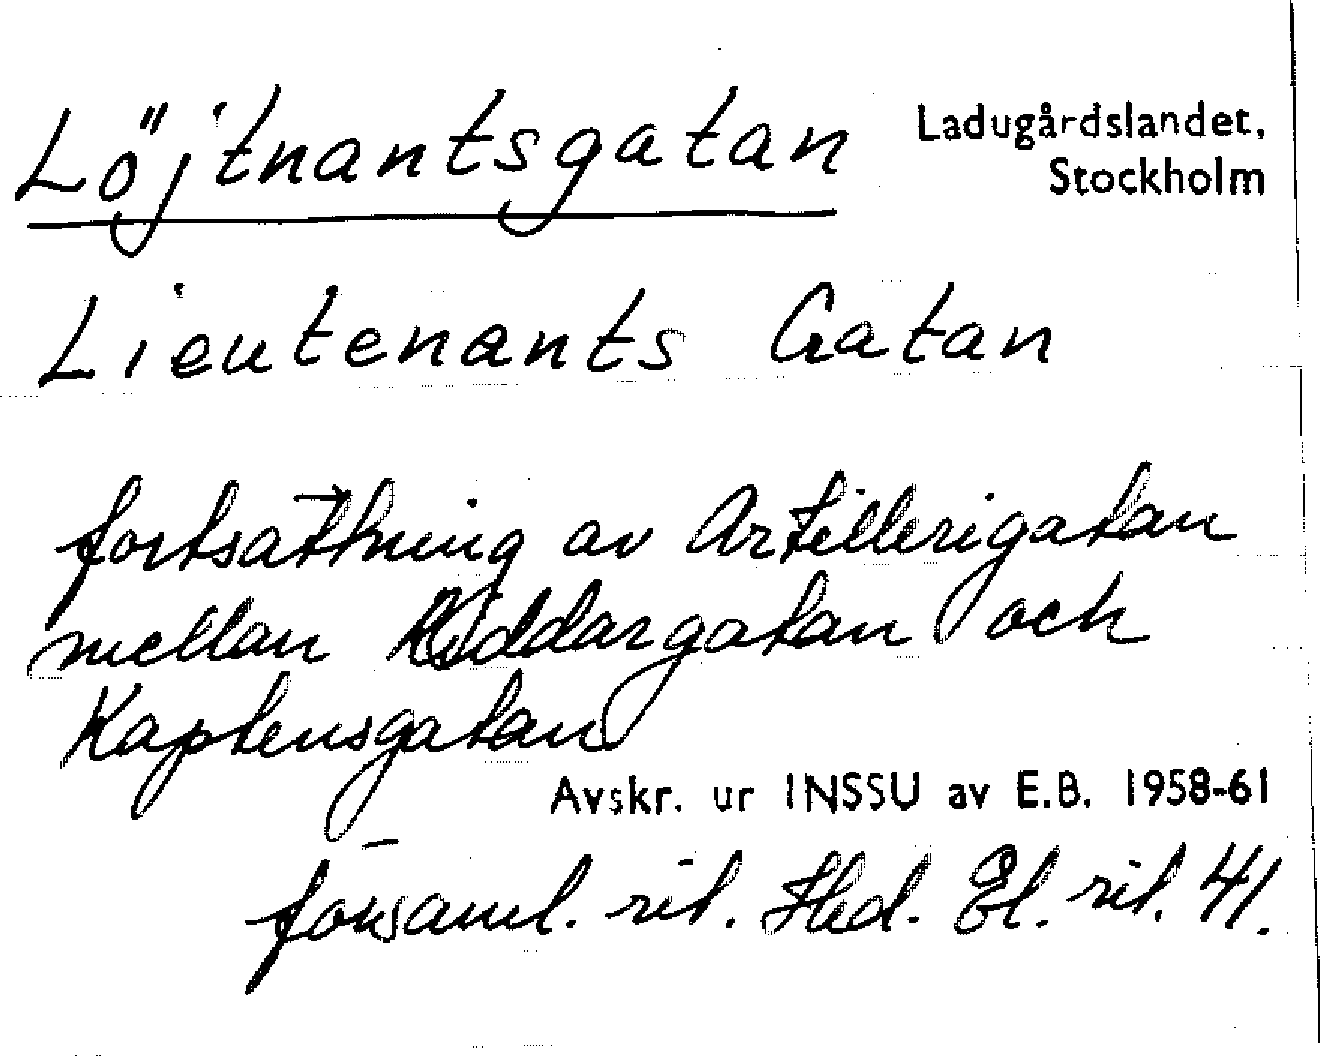 Löjtnantsgatan
Ladugårdslandet,
Stockholm
Lieutenants Gatan
fortsättning av Artillerigatan
mellan Riddargatan och
Kaptensgatan
Avskr. ur INSSU av E.B. 1958-61
församl. rit. Hed. El. rit. 41.